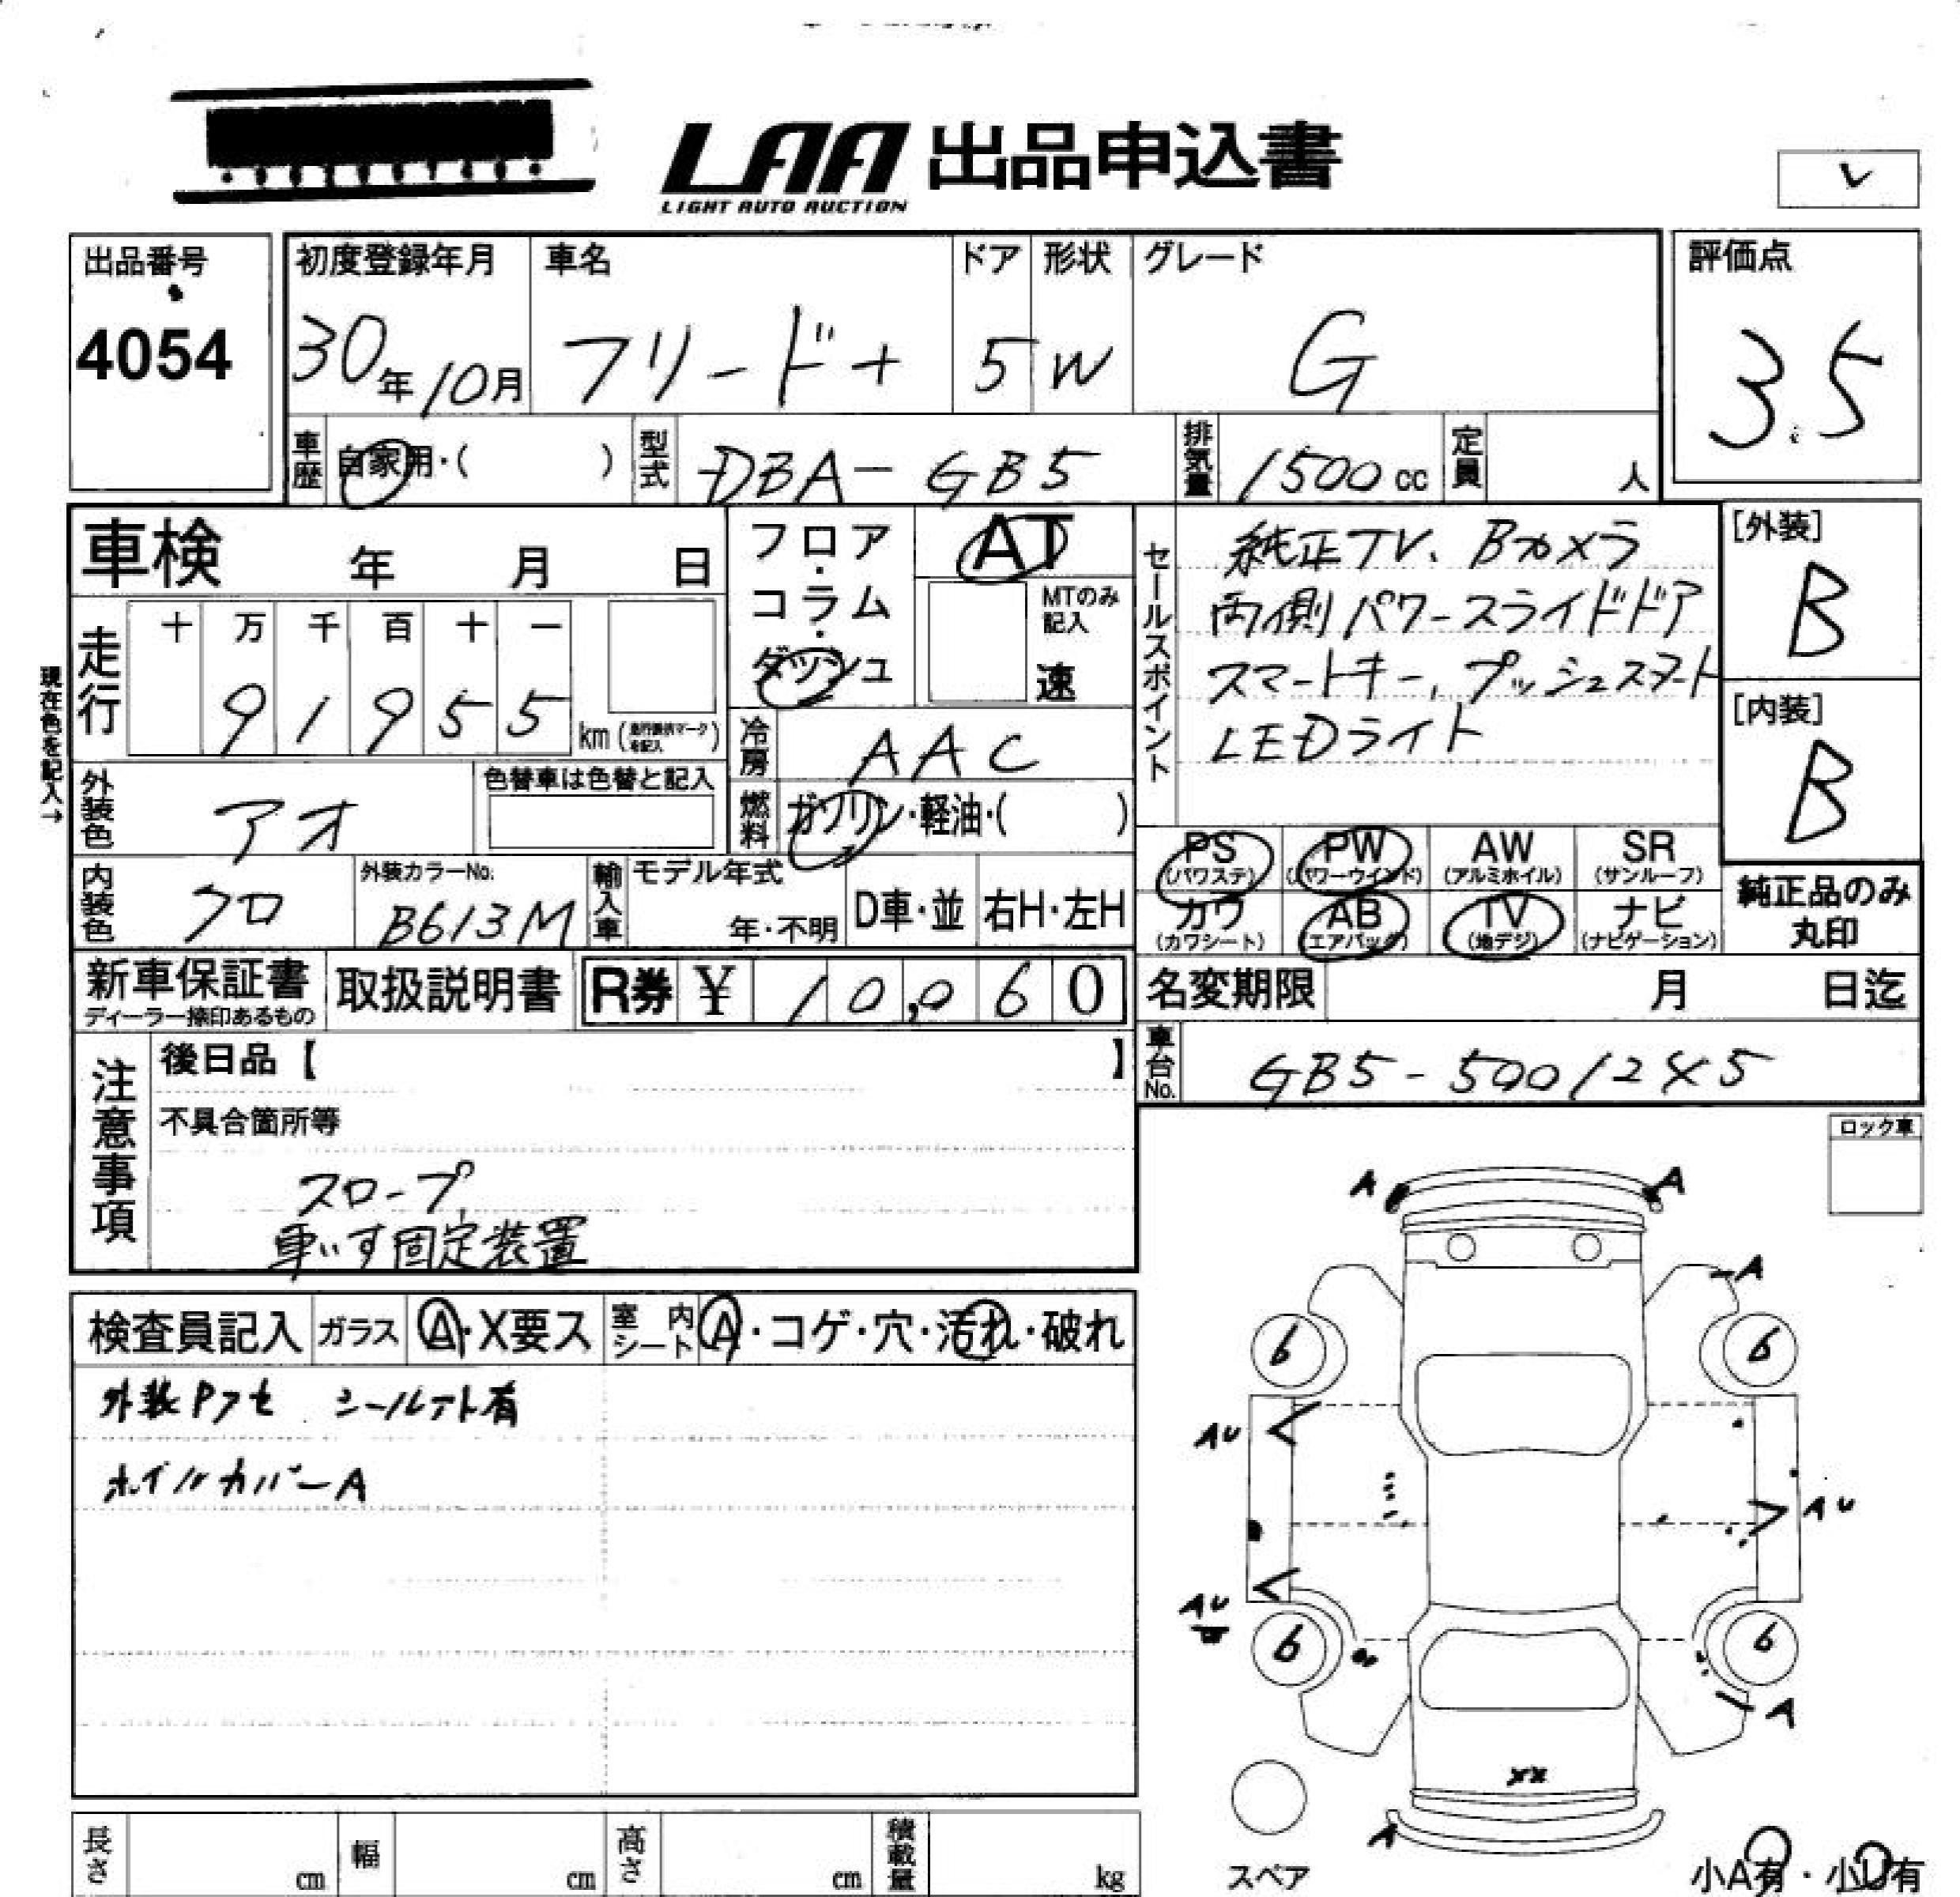 LAA 出品申込書
LIGHT AUTO AUCTION
レ
出品番号
4054
初度登録年月
30年10月
車名
フリード+
ドア
5
形状
W
グレード
G
評価点
3.5
車歴
自家用・( )
型式
DBA-GB5
排気量
1500cc
定員
人
車検 年 月 日
フロア・コラム・ダッシュ
AT
MTのみ記入
速
セールスポイント
純正TV、Bカメラ
両側パワースライドドア
スマートキー,プッシュスタート
LEDライト
[外装]
B
[内装]
B
現在色を記入→
走行
十 万 千 百 十 一
9 1 9 5 5
km
冷房
AAC
外装色
アオ
色替車は色替と記入
燃料
ガソリン・軽油・( )
PS (パワステ)
PW (パワーウインド)
AW (アルミホイル)
SR (サンルーフ)
カワ (カワシート)
AB (エアバッグ)
TV (地デジ)
ナビ (ナビゲーション)
純正品のみ
丸印
内装色
クロ
外装カラーNo.
B613M
輸入車
モデル年式
年・不明
D車・並
右H・左H
新車保証書
ディーラー捺印あるもの
取扱説明書
R券 ¥ 10,060
名変期限 月 日迄
車台No.
GB5-5001245
注意事項
後日品【 】
不具合箇所等
スロープ
車いす固定装置
ロック車
検査員記入
ガラス
A・X要ス
室内シート
A・コゲ・穴・汚れ・破れ
外装Pアセ シールテト有
ホイルカバーA
A A
A
6 6
AU
AU
AU
6 6
A
XX
A
スペア
小A有・小U有
長さ cm
幅 cm
高さ cm
積載量 kg